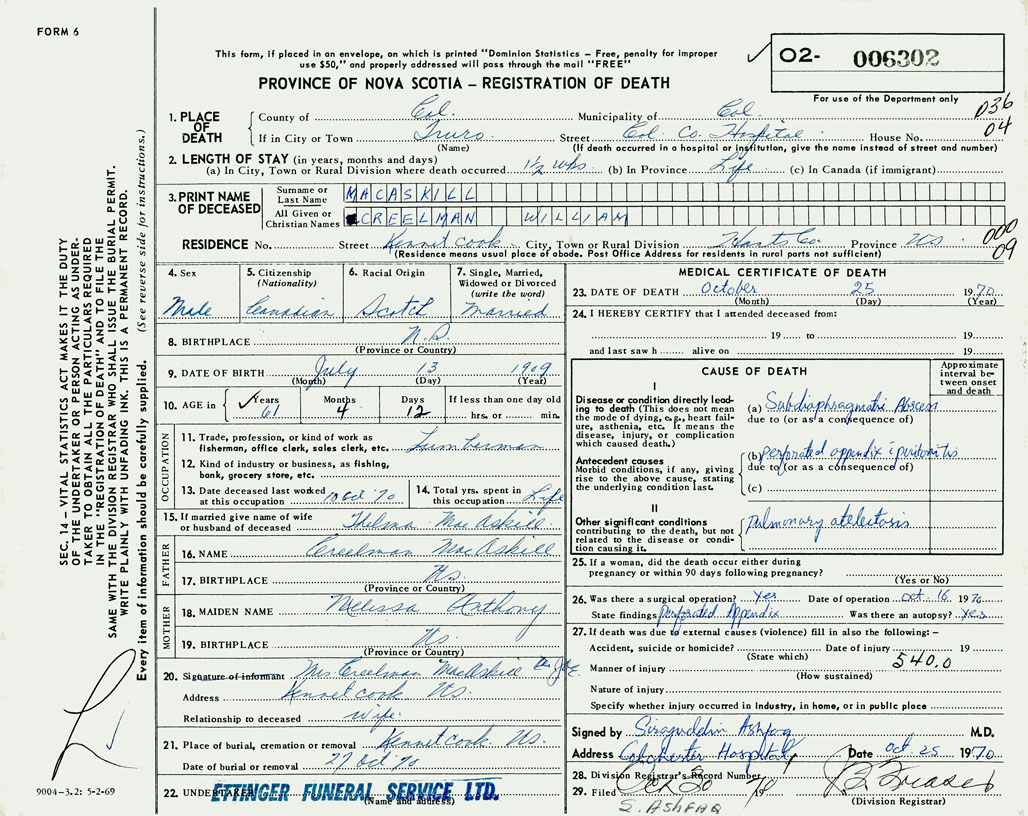 FORM 6
This form, if placed in an envelope, on which is printed "Dominion Statistics - Free, penalty for improper
use $50," and properly addressed will pass through the mail "FREE"
PROVINCE OF NOVA SCOTIA - REGISTRATION OF DEATH
O2- 006302
For use of the Department only
036
04
1. PLACE OF DEATH County of Col. Municipality of Col.
If in City or Town Truro. Street Col. Co. Hospital House No.
(Name) (If death occurred in a hospital or institution, give the name instead of street and number)
2. LENGTH OF STAY (in years, months and days)
(a) In City, Town or Rural Division where death occurred 1½ wks. (b) In Province Life (c) In Canada (if immigrant)
3. PRINT NAME OF DECEASED Surname or Last Name MACASKILL
All Given or Christian Names CREELMAN WILLIAM
RESIDENCE No. Street Kennetcook City, Town or Rural Division Hants Co. Province NS
(Residence means usual place of abode. Post Office Address for residents in rural parts not sufficient)
000
09
4. Sex Male
5. Citizenship (Nationality) Canadian
6. Racial Origin Scotch
7. Single, Married, Widowed or Divorced (write the word) Married
8. BIRTHPLACE N.S.
(Province or Country)
9. DATE OF BIRTH July 13 1909
(Month) (Day) (Year)
10. AGE in Years 61 Months 4 Days 12 If less than one day old hrs. or min.
OCCUPATION
11. Trade, profession, or kind of work as
fisherman, office clerk, sales clerk, etc. Lumberman
12. Kind of industry or business, as fishing,
bank, grocery store, etc.
13. Date deceased last worked at this occupation 10 Oct '70
14. Total yrs. spent in this occupation Life
15. If married give name of wife
or husband of deceased Thelma MacAskill
FATHER
16. NAME Creelman MacAskill
17. BIRTHPLACE NS.
(Province or Country)
MOTHER
18. MAIDEN NAME Melissa Anthony
19. BIRTHPLACE NS.
(Province or Country)
20. Signature of informant Mrs Creelman MacAskill
Address Kennetcook NS.
Relationship to deceased wife.
21. Place of burial, cremation or removal Kennetcook NS.
Date of burial or removal 27 Oct '70
22. UNDERTAKER ETTINGER FUNERAL SERVICE LTD.
(Name and address)
MEDICAL CERTIFICATE OF DEATH
23. DATE OF DEATH October 25 1970
(Month) (Day) (Year)
24. I HEREBY CERTIFY that I attended deceased from:
19 to 19
and last saw h alive on 19
CAUSE OF DEATH
Approximate interval between onset and death
I
Disease or condition directly lead-
ing to death (This does not mean
the mode of dying, e.g., heart fail-
ure, asthenia, etc. It means the
disease, injury, or complication
which caused death.)
(a) Subdiaphragmatic Abscess
due to (or as a consequence of)
Antecedent causes
Morbid conditions, if any, giving
rise to the above cause, stating
the underlying condition last.
(b) perforated appendix c peritonitis
due to (or as a consequence of)
(c)
II
Other significant conditions
contributing to the death, but not
related to the disease or condi-
tion causing it.
pulmonary atelectosis
25. If a woman, did the death occur either during
pregnancy or within 90 days following pregnancy?
(Yes or No)
26. Was there a surgical operation? yes Date of operation oct. 16 1970
State findings Perforated Appendix Was there an autopsy? yes
27. If death was due to external causes (violence) fill in also the following: -
Accident, suicide or homicide? Date of injury 19
(State which) 540.0
Manner of injury
(How sustained)
Nature of injury
Specify whether injury occurred in industry, in home, or in public place
Signed by Sirajuddin Ashfaq M.D.
Address Colchester Hospital Date oct. 25 1970
28. Division Registrar's Record Number
29. Filed Oct 30 1970
(Division Registrar)
S. ASHFAQ
SEC. 14 - VITAL STATISTICS ACT MAKES IT THE DUTY
OF THE UNDERTAKER OR PERSON ACTING AS UNDER-
TAKER TO OBTAIN ALL THE PARTICULARS REQUIRED
IN THE "REGISTRATION OF DEATH" AND TO FILE THE
SAME WITH THE DIVISION REGISTRAR WHO SHALL ISSUE THE BURIAL PERMIT.
WRITE PLAINLY WITH UNFADING INK. THIS IS A PERMANENT RECORD.
Every item of information should be carefully supplied. (See reverse side for instructions.)
9004-3.2: 5-2-69